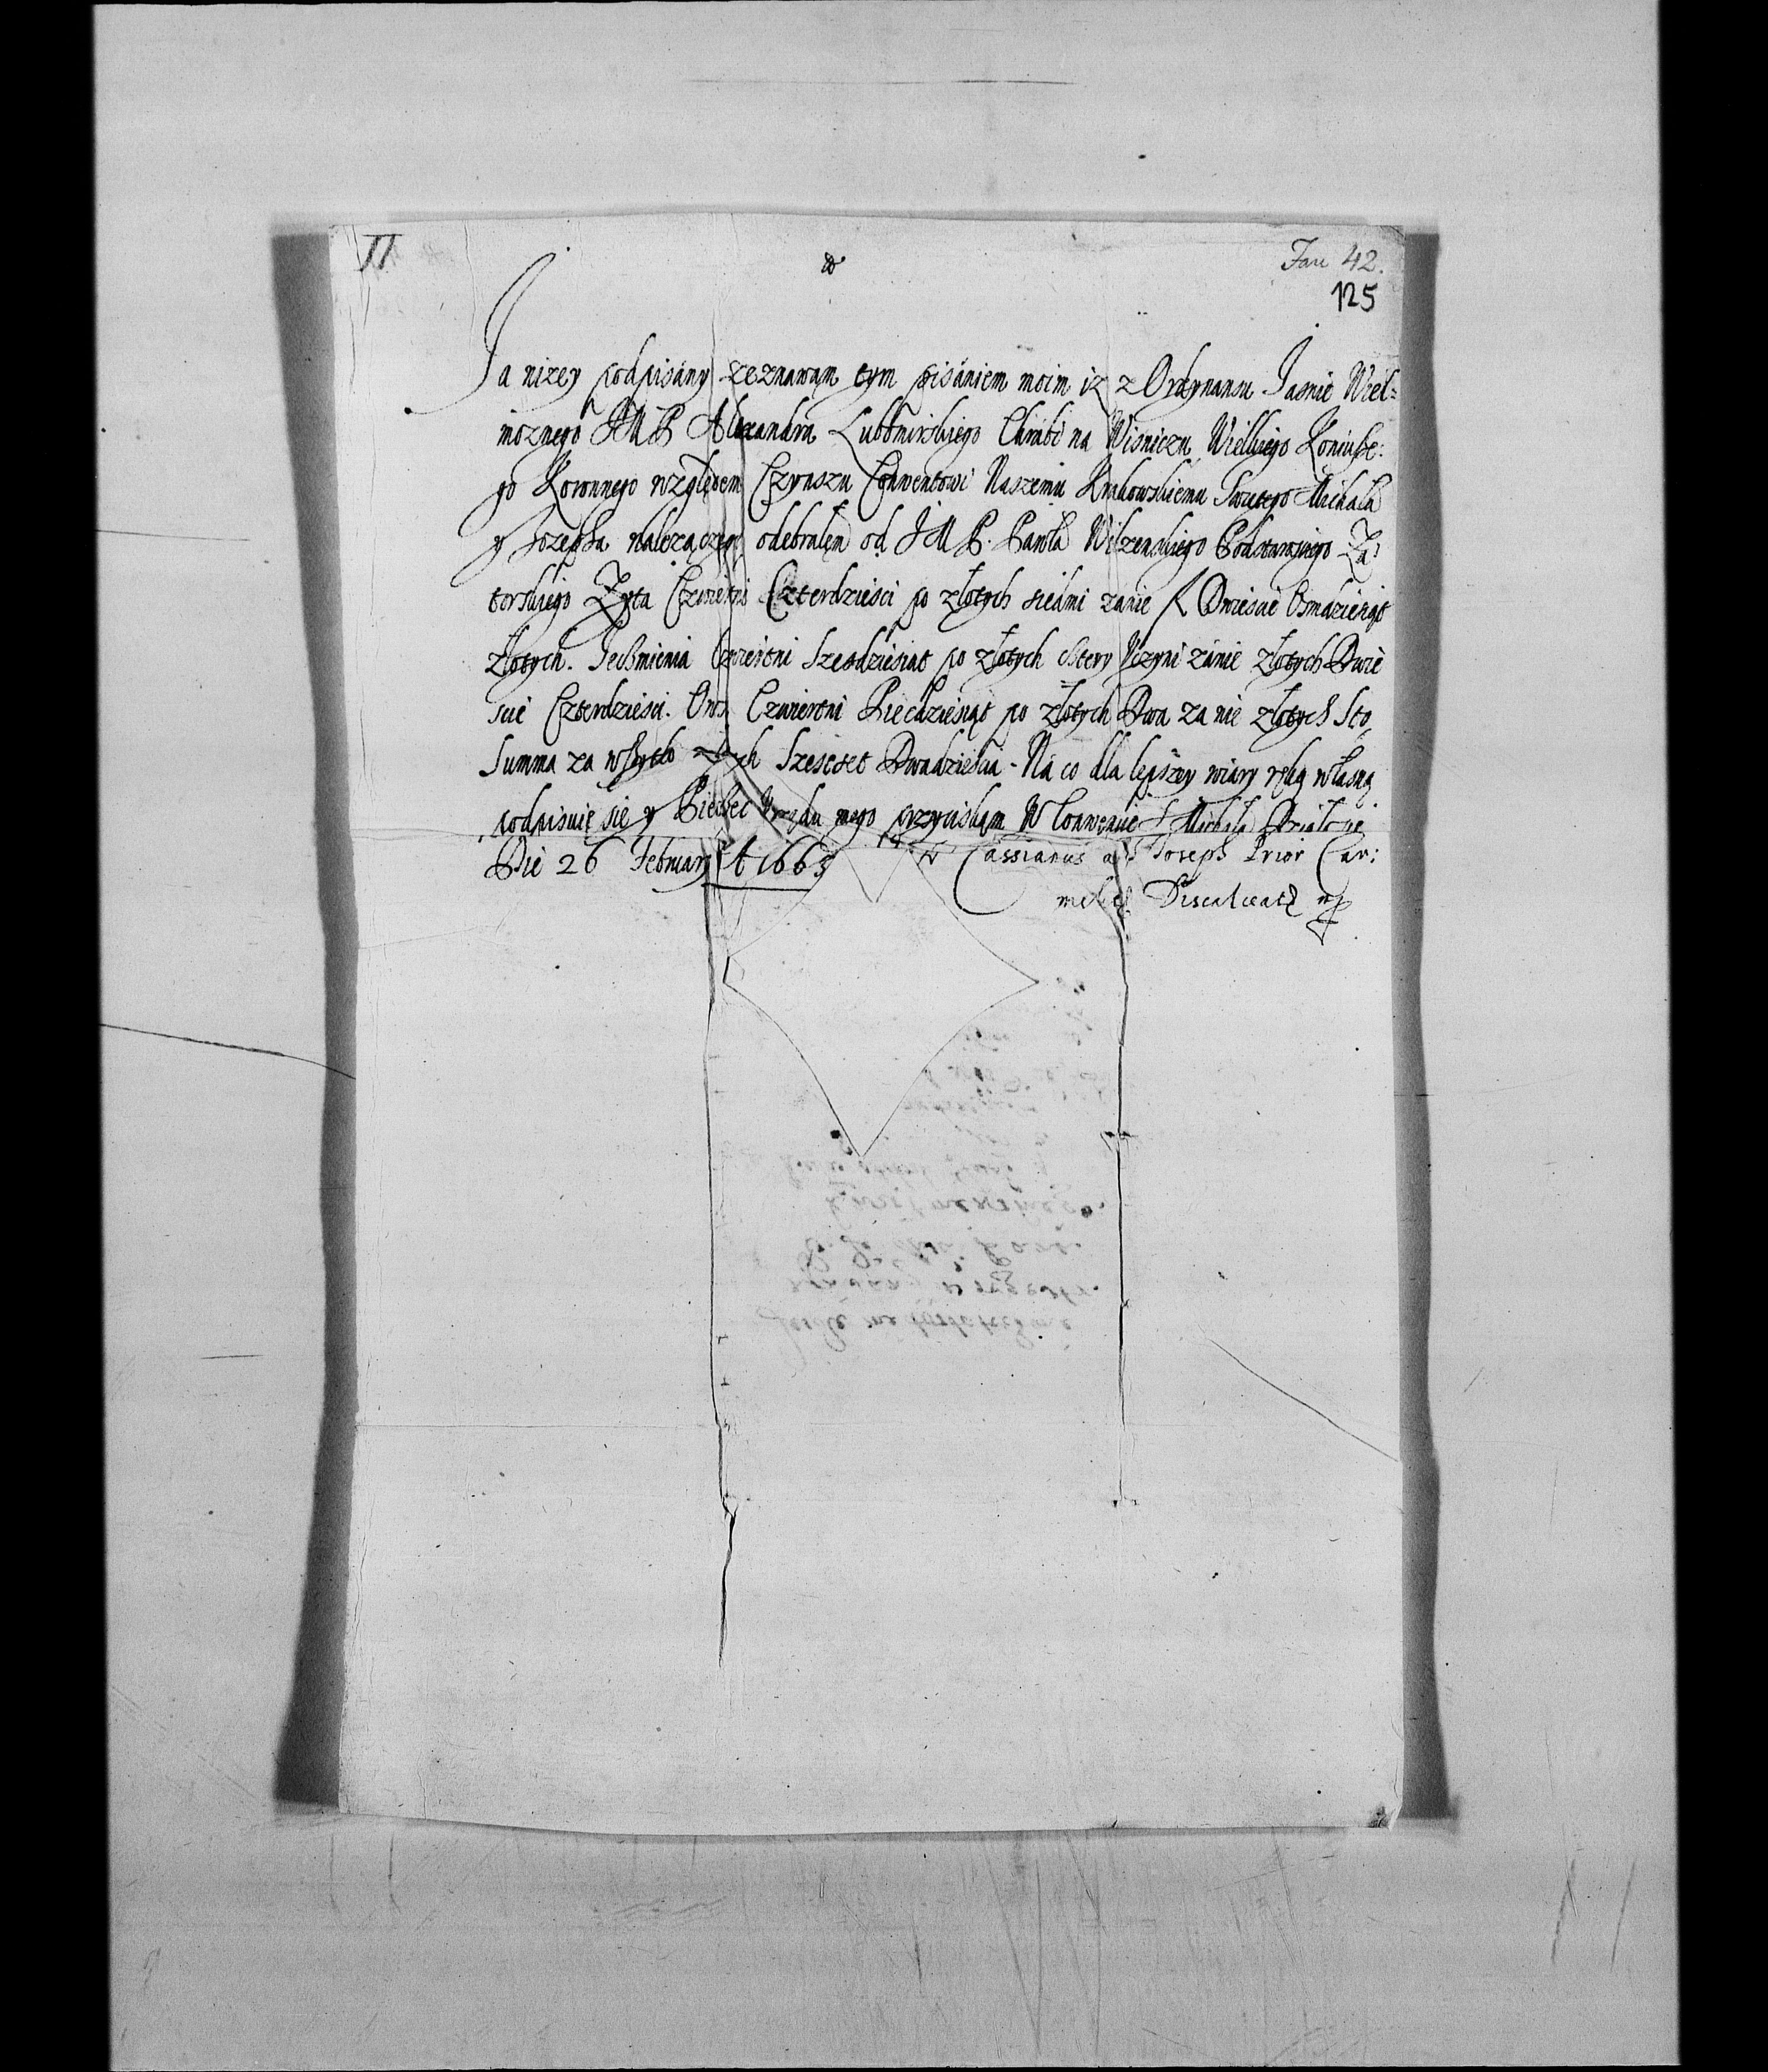 11
Fau 42.
125
Ja nizey podpisány zeznawam tym pisániem moim iz z Ordynansu Jasnie Wiel=
moznego JMP Alexandra Lubomirskiego Chrabi na Wisniczu Wielkiego Koniusze:
go Koronnego względem Czynszu Conwentowi Naszemu Krakowskiemu Swietego Michala
y Jozepha nalezączego odebralem od J M P. Pawla Wilzenskiego Podstarosciego Za:
torskiego Zyta Czwierti Czterdziesci po złotych siedmi zanie Dwiescie Osmdziesiąt
złotych. Jeczmienia Czwiertni Szesdziesiat po złotych cztery Uczyni zánie złotych Dwie
scie Czterdziesci. Owsa Czwiertni Piecdziesiąt po złotych Dwa zanie złotych Sto,
Summa za wszytko złotych Szescset Dwadziescia - Ná co dla lepszey wiary ręką własną
podpisuię się y Pieczec Urzędu mego przyciskam W Conwencie S Michała
Die 26 February A 1663
Cassianus a S Joseph Prior Car:
melit. Discalceat mp